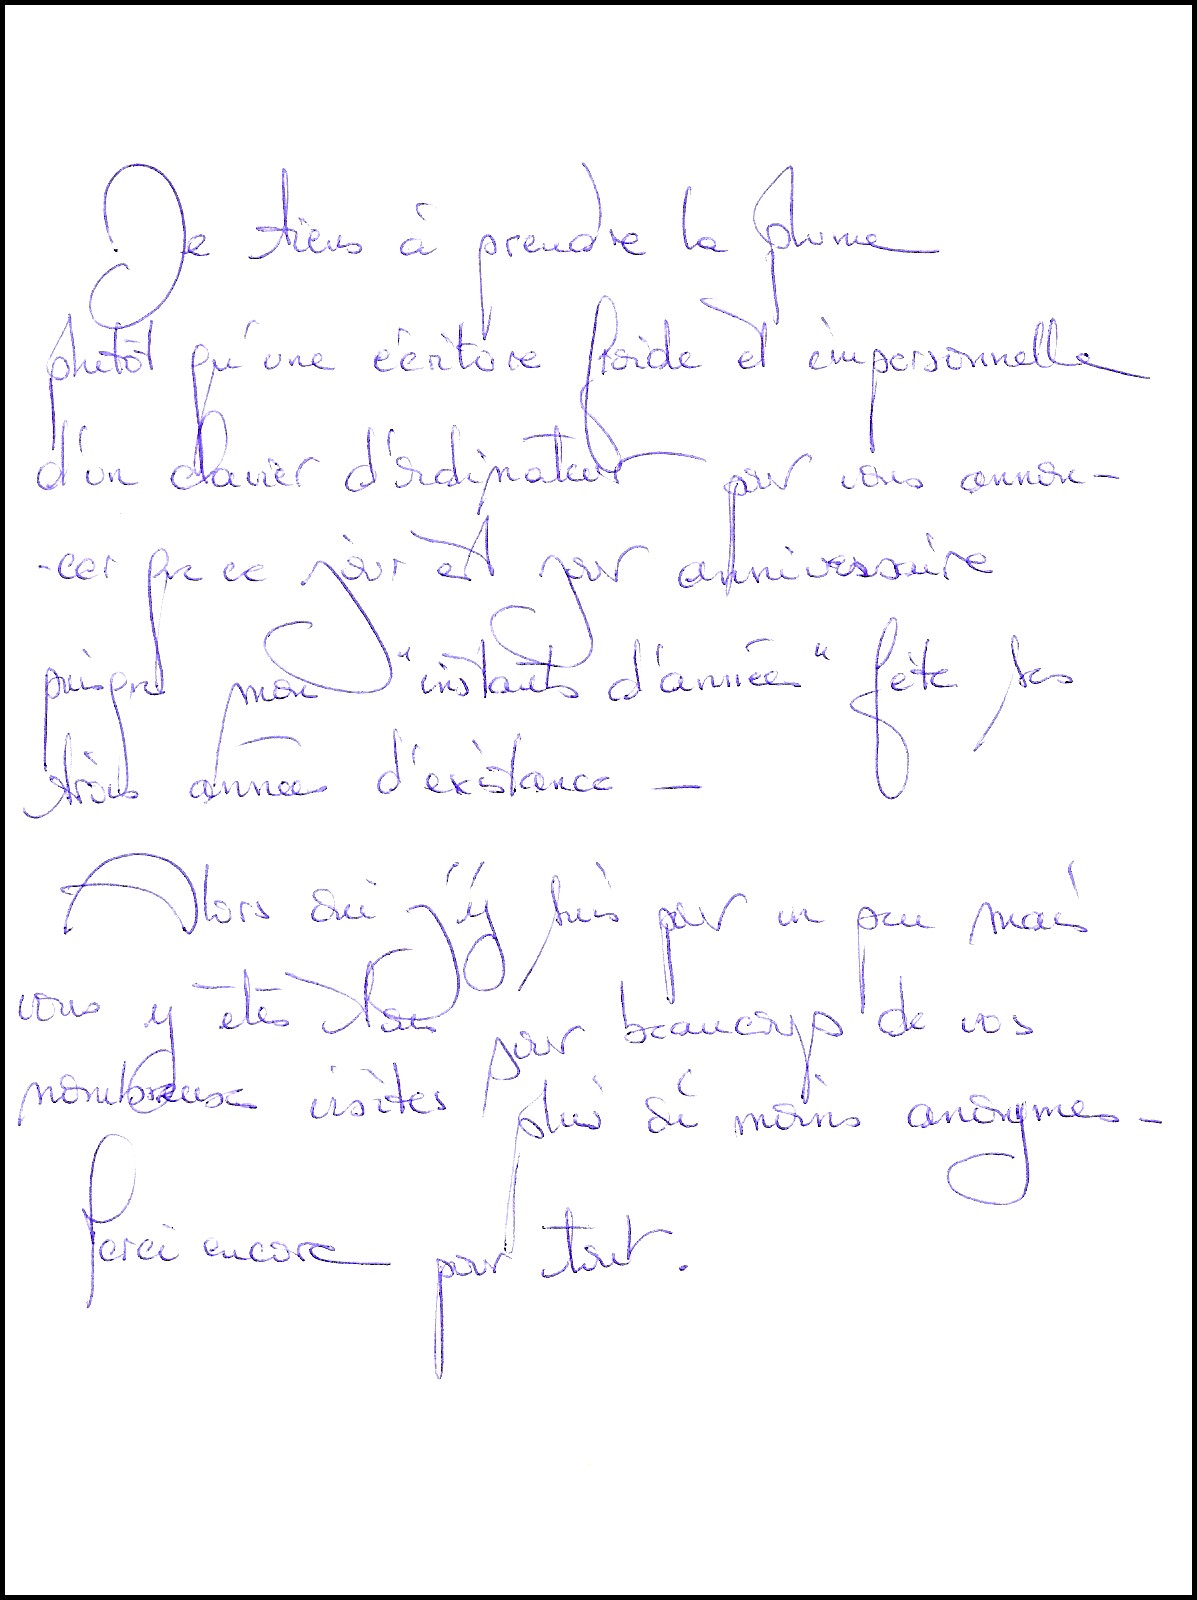 Je tiens à prendre la plume
plutôt qu'une écriture froide et impersonnelle
d'un clavier d'ordinateur pour vous annon-
-cer que ce jour est jour anniversaire
puisque mon "instants d'année" fête ses
trois années d'existance -
Alors oui j'y suis pour un peu mais
vous y êtes pour beaucoup de vos
nombreuses visites plus ou moins anonymes -
Merci encore pour tout.